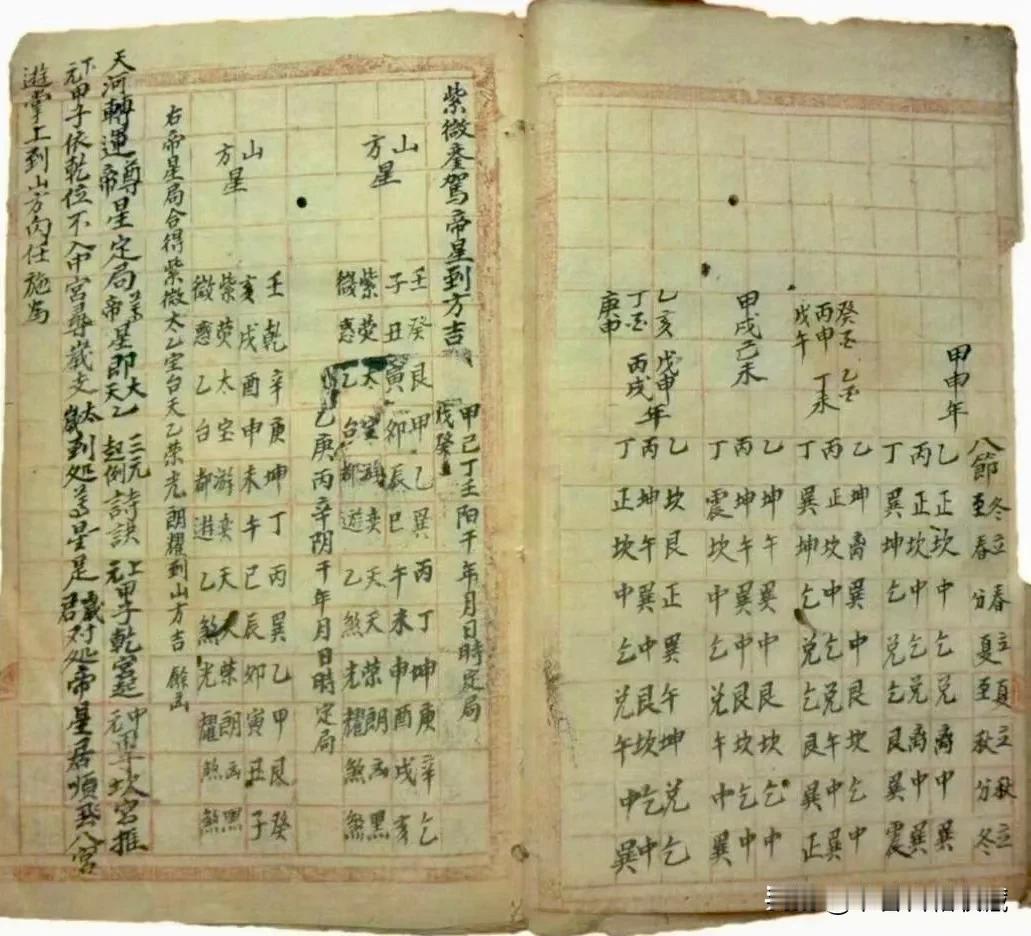 八節 冬至 立春 春分 立夏 夏至 立秋 秋分 立冬
甲申年
乙正坎中乞兑离中巽
丙正坎中乞兑离中巽
丁巽坤乞兑乞艮巽震
癸丑 乙丑
丙申
戊午 丁未
乙坤离巽中艮坎乞中
丙正坎中乞兑午中巽
丁巽坤乞兑乞艮巽正
甲戌己未
乙坤午巽中艮坎乞中
丙坤午巽中艮坎乞中
丁震坎中乞兑午中巽
乙亥 戊申年
丁丑 丙戌
庚申
乙坎艮正巽午坤兑乞
丙坤午巽中艮坎乞中
丁正坎中乞兑午中巽
紫微銮駕帝星到方吉
甲己丁壬陽干年月日時定局
戊癸
山方星
壬癸艮甲乙巽丙丁坤庚辛乞
子丑寅卯辰巳午未申酉戌亥
紫荧太宝游奕天天荣朗凶黑
微惑乙台都遊乙煞光耀煞煞
乙庚丙辛阴干年月日時定局
山方星
壬乾辛庚坤丁丙巽乙甲艮癸
亥戌酉申未午巳辰卯寅丑子
紫荧太宝游奕天天荣朗凶黑
微惑乙台都遊乙煞光耀煞煞
右帝星局合得紫微太乙宝台天乙荣光朗耀到山方吉 餘凶
天河轉運尊帝星定局 尊帝星即太乙天乙 三元起例詩訣 上元甲子乾宮起 中元甲子坎宮推
下元甲子依乾位不入中宮尋歲支 太歲到処尊星是 歲君对処帝星居順飛八宮
遊掌上到山方向任施為